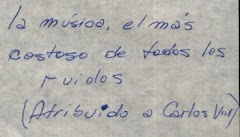 la música, el más
costoso de todos los
ruidos
(Atribuido a Carlos VIII)